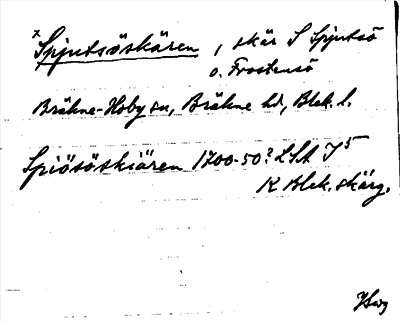 × Spjutsöskären, skär S Spjutsö
o. Frostensö
Bräkne-Hoby sn, Bräkne hd, Blek. l.
Spiösöskiären 1700-50? LSA J5
K Blek. skärg.